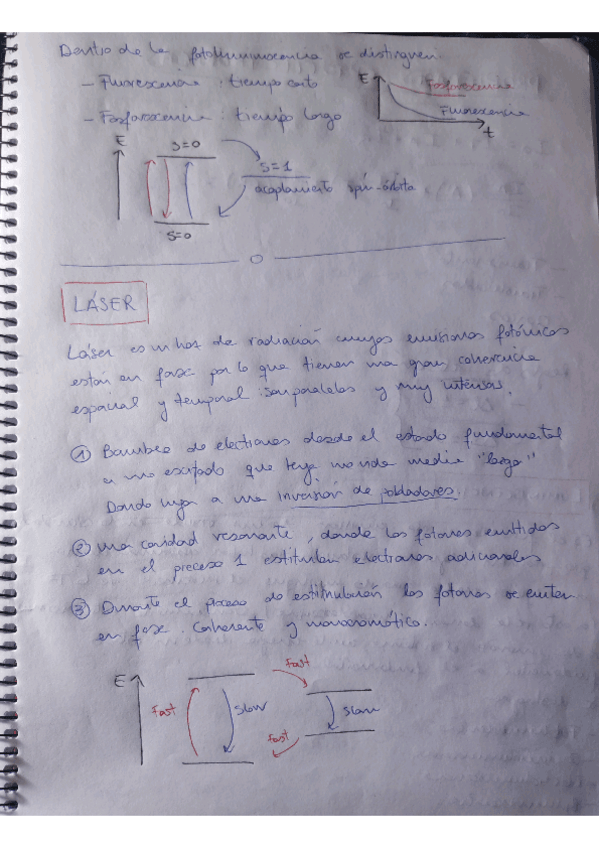 Dentro de la fotoluminiscencia se distinguen:
- Fluorescencia : tiempo corto
- Fosforescencia : tiempo largo
E
Fosforescencia
Fluorescencia
t
E
S=0
S=1
acoplamiento spin-órbita
S=0
LÁSER
Láser es un haz de radiación cuyas emisiones fotónicas
están en fase por lo que tienen una gran coherencia
espacial y temporal. Son paralelos y muy intensos.
① Bombeo de electrones desde el estado fundamental
a uno excitado que tenga una vida media "larga"
Dando lugar a una inversión de poblaciones.
② Una cavidad resonante, donde los fotones emitidos
en el proceso 1 estimulan electrones adicionales
③ Durante el proceso de estimulación los fotones se emiten
en fase. Coherente y monocromático.
E
fast
slow
fast
slow
fast